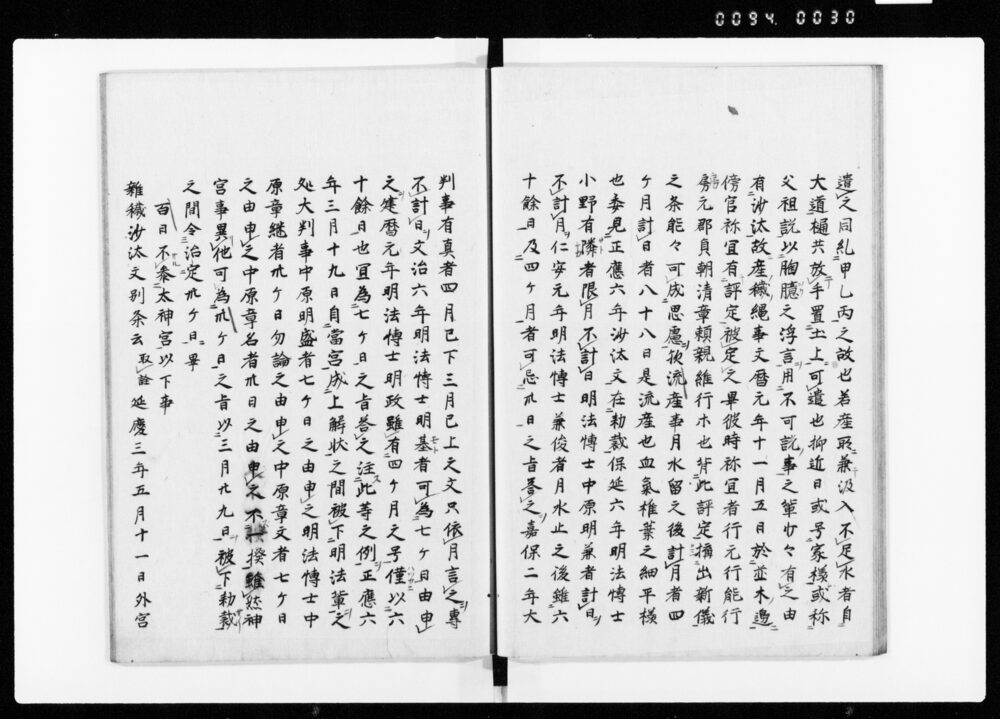 0094.0030
遺之同糺甲乙丙之故也若産取兼汲入不足水者自
大道樋共放手置土上可遣也抑近日或号家様或称
父祖説以胸臆之浮言用不可説事之輩少々有之由
有沙汰故産穢縄事文暦元年十一月五日於並木邊
傍官祢宜有評定被定之畢彼時祢宜者行元行能行
房元郡貞朝清章頼親維行木也背此評定構出新儀
之条能々可成思慮歟流産事月水留之後計月者四
ケ月計日者八十八日是流産也血氣椎葉之細平様
也委見正應六年沙汰文在勅裁保延六年明法博士
小野有隣者限月不計日明法博士中原明兼者計日
不計月仁安元年明法博士兼俊者月水止之後雖六
十餘日及四ケ月者可忌卅日之旨荅之嘉保二年大
判事有真者四月已下三月已上之文只依月言之專
不計日文治六年明法博士明基者可為七ケ日由申
之建暦元年明法博士明政雖有四ケ月之号僅以六
十餘日也宜為七ケ日之旨荅之注此等之例正應六
年三月十九日自當宮成上解状之間被下明法輩之
處大判事中原明盛者七ケ日之由申之明法博士中
原章継者卅ケ日勿論之由申之中原章文者七ケ日
之由申之中原章名者卅日之由申之不揆雖然神
宮事異他可為卅ケ日之旨以三月廿九日被下勅裁
之間令治定卅ケ日畢
百日不参太神宮以下事
雜穢沙汰文別条云取詮延慶三年五月十一日外宮